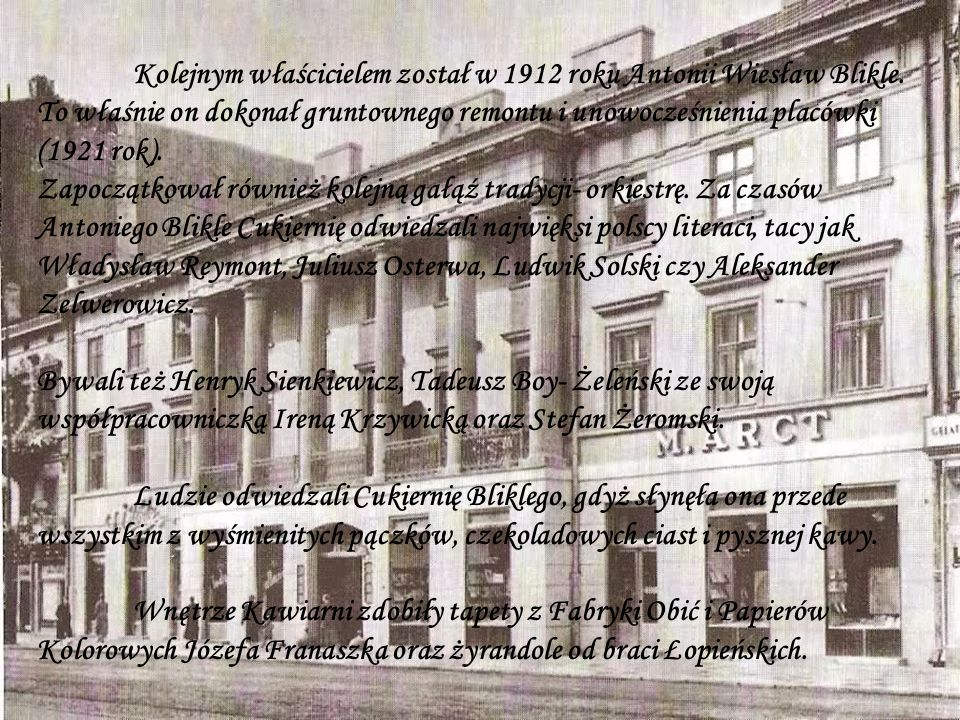 Kolejnym właścicielem został w 1912 roku Antonii Wiesław Blikle.
To właśnie on dokonał gruntownego remontu i unowocześnienia placówki
(1921 rok).
Zapoczątkował również kolejną gałąź tradycji- orkiestrę. Za czasów
Antoniego Blikle Cukiernię odwiedzali najwięksi polscy literaci, tacy jak
Władysław Reymont, Juliusz Osterwa, Ludwik Solski czy Aleksander
Zelwerowicz.
Bywali też Henryk Sienkiewicz, Tadeusz Boy- Żeleński ze swoją
współpracowniczką Ireną Krzywicką oraz Stefan Żeromski.
M. ARCT
Ludzie odwiedzali Cukiernię Bliklego, gdyż słynęła ona przede
wszystkim z wyśmienitych pączków, czekoladowych ciast i pysznej kawy.
Wnętrze Kawiarni zdobiły tapety z Fabryki Obić i Papierów
Kolorowych Józefa Franaszka oraz żyrandole od braci Łopieńskich.